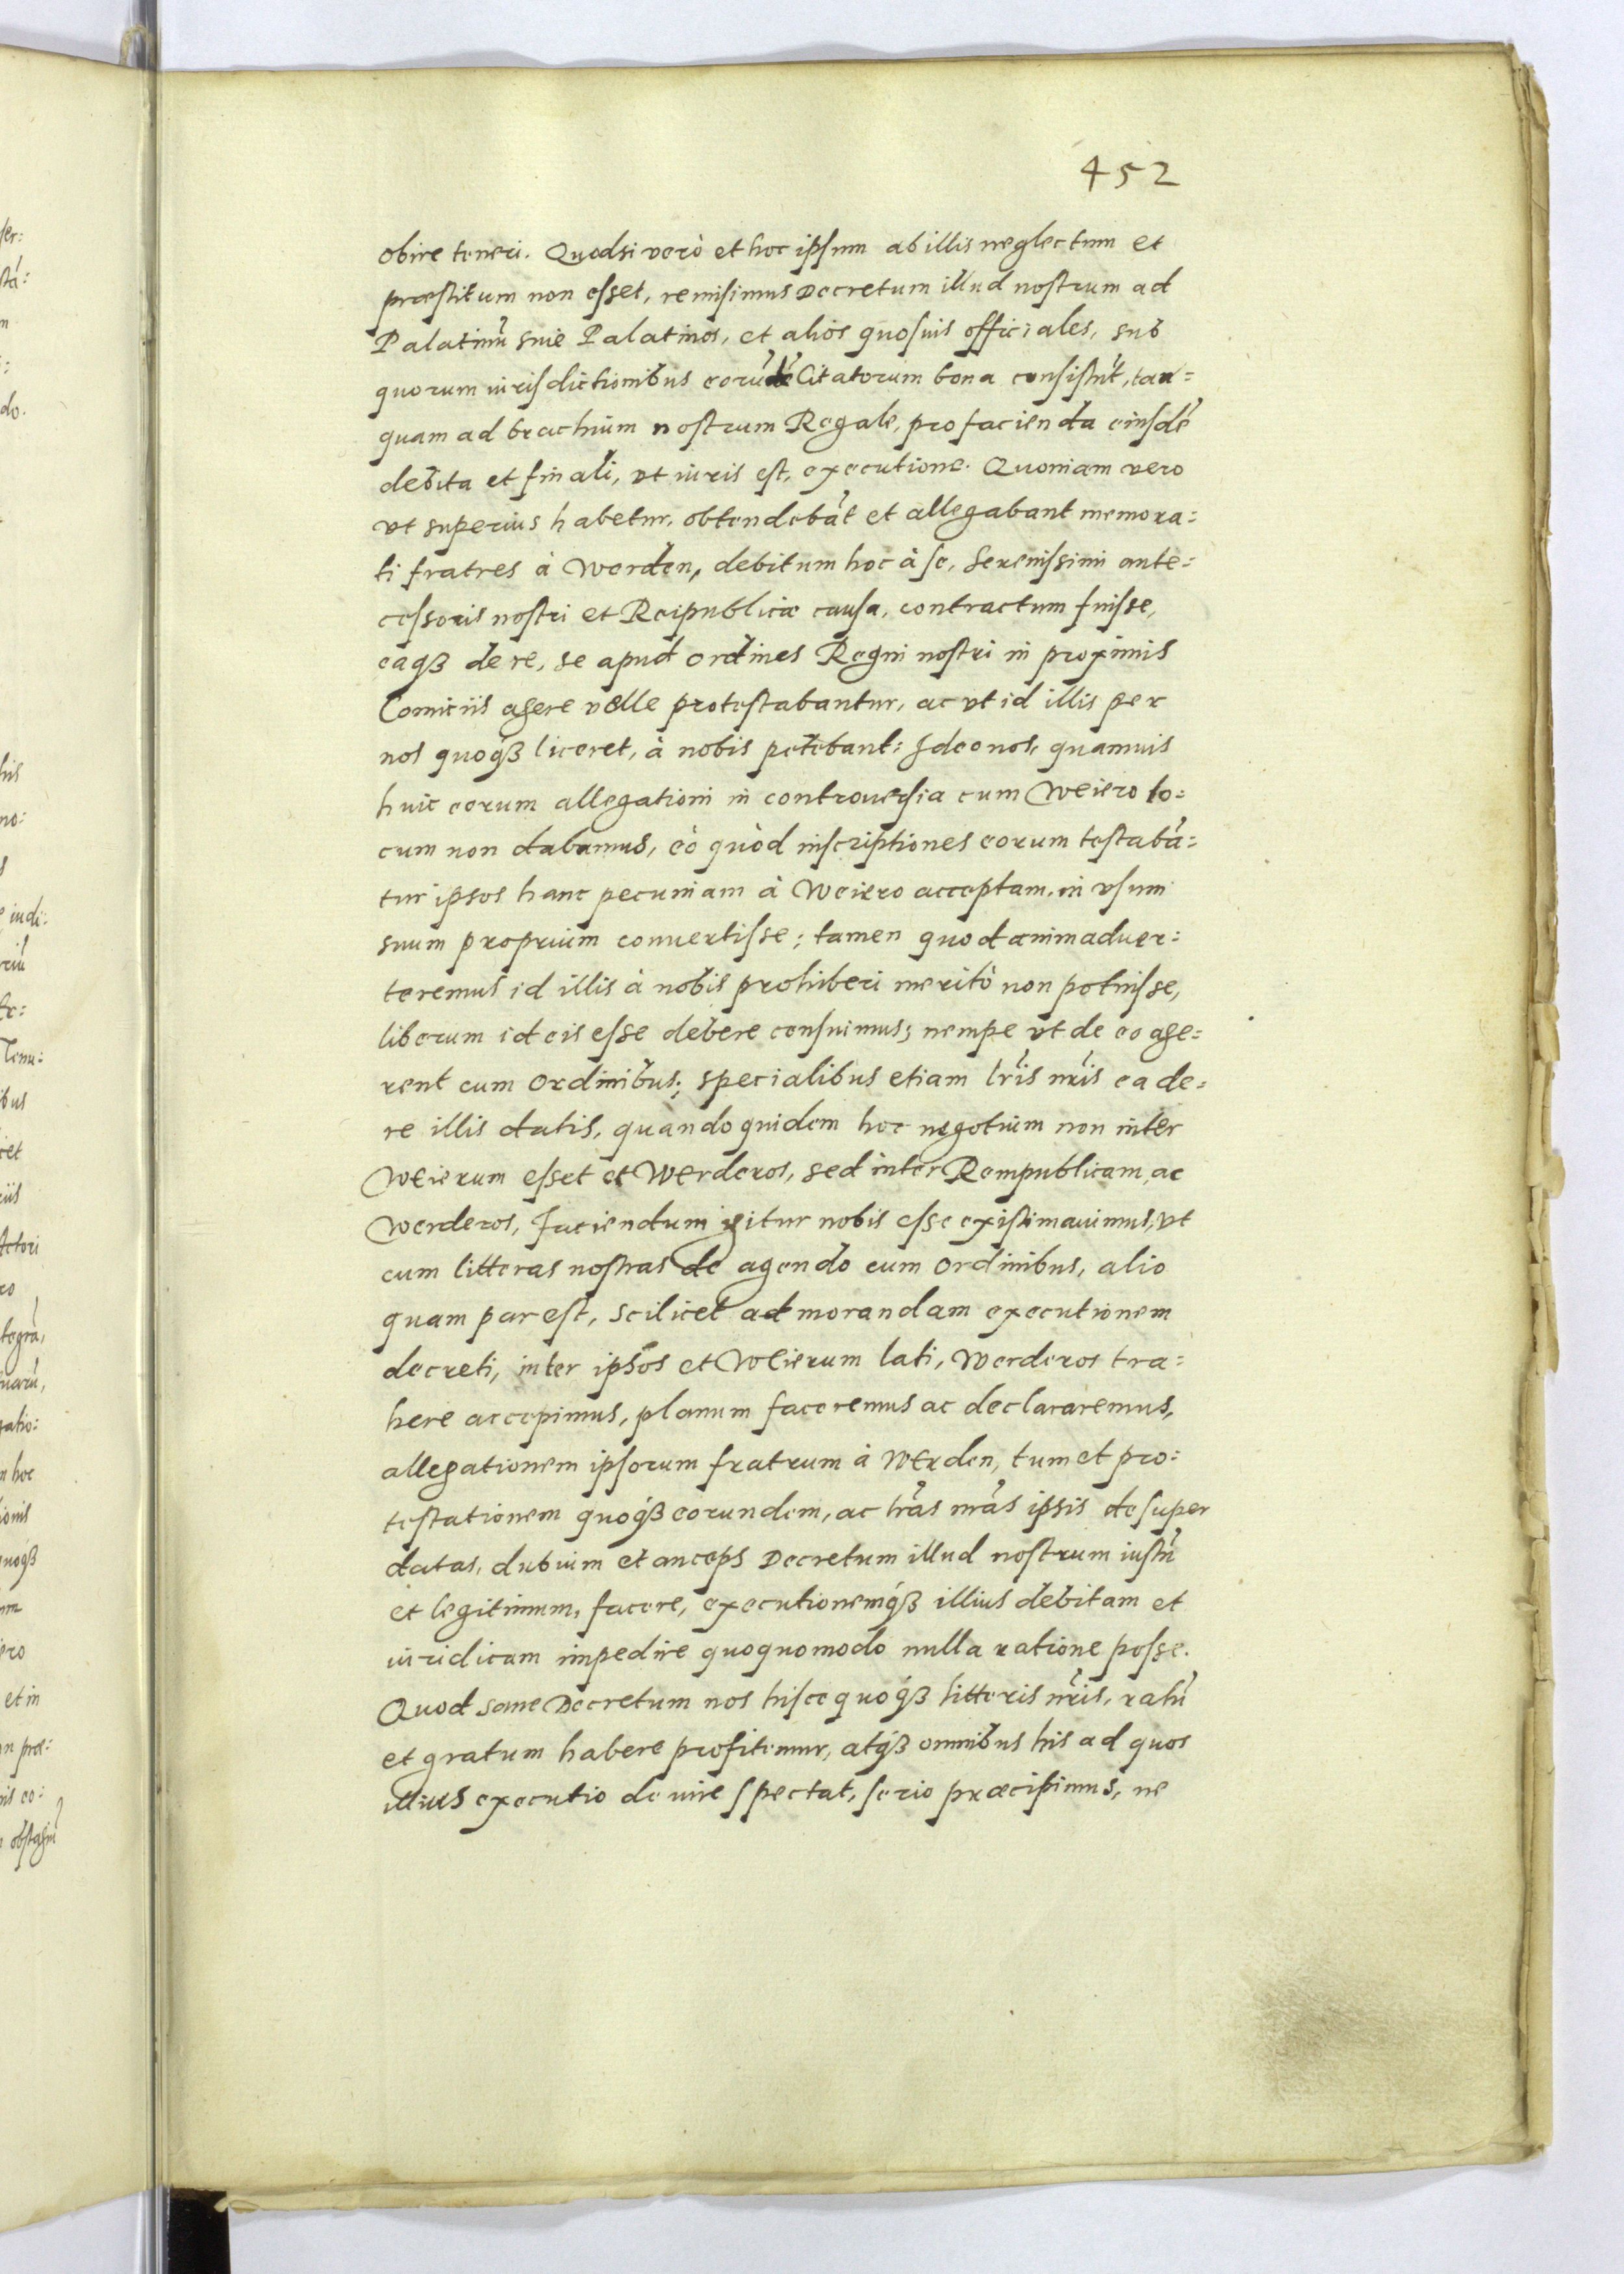 452
obire teneri. Quodsi verò et hoc ipsum ab illis neglectum et
præstitum non esset, remisimus Decretum illud nostrum ad
Palatinũ siue Palatinos, et alios quosuis officiales, sub
quorum iurisdictionibus eorũdẽ Citatorum bona consistũt, tan=
quam ad brachium nostrum Regale, pro facienda eiusdẽ
debita et finali, vt iuris est, executione. Quoniam vero
vt superius habetur, obtendebãt et allegabant memora=
ti fratres à Werden, debitum hoc à se, Serenissimi ante=
cessoris nostri et Reipublicæ causa, contractum fuisse,
eaqꝫ de re, se apud ordines Regni nostri in proximis
Comitiis agere velle protestabantur, ac vt id illis per
nos quoqꝫ liceret, à nobis petebant: Ideo nos, quamuis
huic eorum allegationi in controuersia cum Weiero lo=
cum non dabamus, eò quòd inscriptiones eorum testabã=
tur ipsos hanc pecuniam à Weiero acceptam, in vsum
suum proprium conuertisse; tamen quod animaduer=
teremus id illis à nobis prohiberi meritò non potuisse,
liberum id eis esse debere censuimus; nempe vt de eo age=
rent cum Ordinibus; specialibus etiam lr̃is nr̃is ea de=
re illis datis, quandoquidem hoc negotium non inter
Weierum esset et Werderos, sed inter Rempublicam, ac
Werderos, faciendum igitur nobis esse existimauimus, vt
cum litteras nostras de agendo cum Ordinibus, alio
quam par est, scilicet ad morandam executionem
decreti, inter ipsos et Weierum lati, Werderos tra=
here accepimus, planum faceremus ac declararemus,
allegationem ipsorum fratrum à Werden, tum et pro=
testationem quoqꝫ eorundem, ac lr̃as nr̃as ipsis desuper
datas, dubium et anceps Decretum illud nostrum iustũ
et legitimum, facere, executionemqꝫ illius debitam et
iuridicam impedire quoquomodo nulla ratione posse.
Quod sane Decretum nos hisce quoqꝫ litteris nr̃is, ratũ
et gratum habere profitemur, atqꝫ omnibus his ad quos
illius executio de iure spectat, serio præcipimus, ne